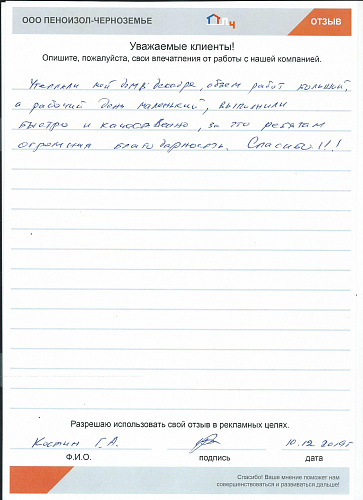 ООО ПЕНОИЗОЛ-ЧЕРНОЗЕМЬЕ
ПЧ
ОТЗЫВ
Уважаемые клиенты!
Опишите, пожалуйста, свои впечатления от работы с нашей компанией.
Утепляли мой дом в декабре, объем работ большой,
а рабочий день маленький, выполнили
быстро и качественно, за это ребятам
огромная благодарность. Спасибо!!!
Разрешаю использовать свой отзыв в рекламных целях.
Костин Г.А. 10.12.2019г
Ф.И.О. подпись дата
Спасибо! Ваше мнение поможет нам
совершенствоваться и развиваться дальше!